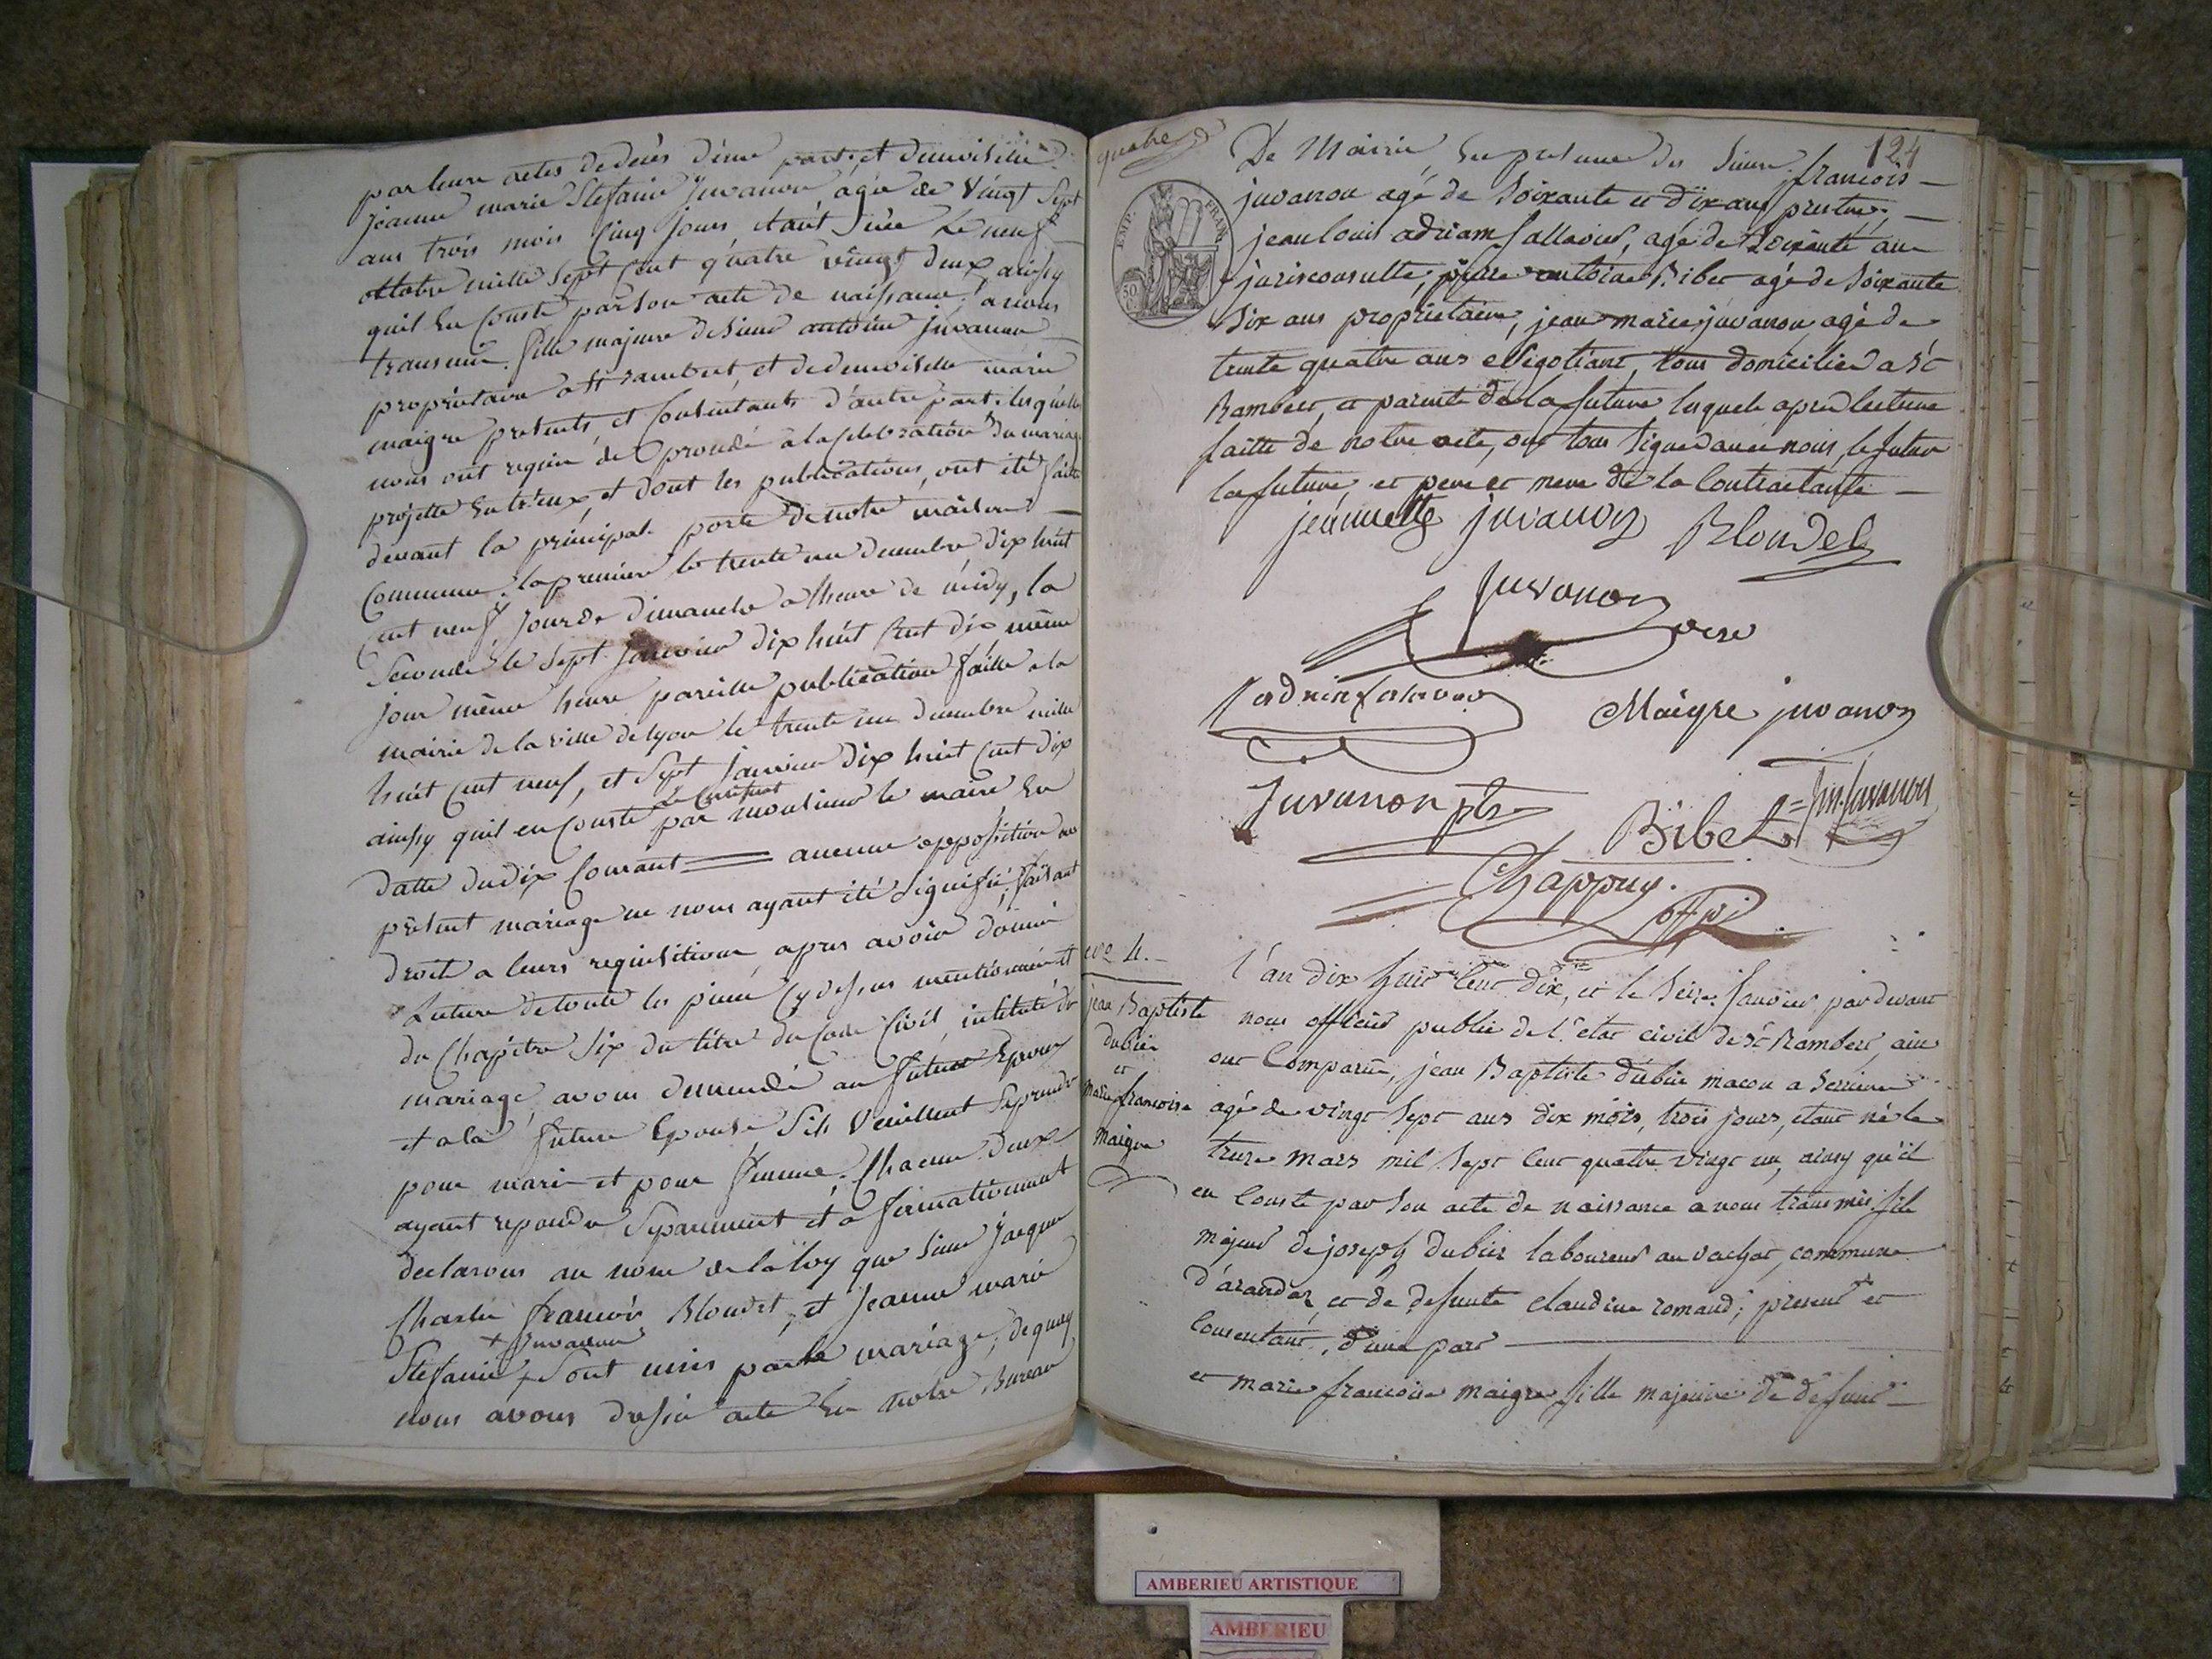 par leurs actes de deces d'une part, et demoiselle
jeanne marie Stefanie Juvanon agée de Vingt Sept
ans trois mois Cinq jours etant née Le neuf
ottobre mille Sept Cent quatre vingt deux, ainssy
quil En Conste par son acte de naissance, a nous
transmis. fille majeure de Sieur antoine Juvanon
proprietaire a St rambert, et de demoiselle marie
maigre presents, et Consentants d'autre part. lesquels
nous ont requis de procedé a la Celebration du mariage
projetté Entr'eux, et dont les publications, ont été faite
devant la principal porte de notre maison
Commune. la premiere le trente un decembre dix huit
Cent neuf, jour de dimanche a lheure de midy, la
Seconde le Sept Janvier dix huit Cent dix même
jour même heure pareille publication faitte a la
mairie de la ville de lyon le trente un decembre mille
huit Cent neuf, et Sept Janvier dix huit Cent dix
le Certificat
ainssy quil en Conste par monsieur le maire En
datte du dix Courant aucune opposition au
présent mariage ne nous ayant été Signifié, faisant
droit a leurs requisitions apres avoir donné
Lecture de toute les pieces Cy dessus mentionné et
du Chapitre Six du titre du Code Civil, intitulé du
mariage, avons demandé au futur Epoux
et a la future Epouse S'ils Veuillent Se prendre
pour mari et pour femme. Chacun deux
ayant repondu Separement et a firmativement
declarons au nom de la loy que Sieur Jacque
Charle francois Blondel, et Jeanne marie
+ Juvanon
Stefanie + Sont unis par le mariage, de quoy
nous avons dressé acte En notre Bureau
quatre
124
De Mairie, En presence des Sieurs francois
juvanon agé de Soixante et dix ans pretre,
jean louis adriam fallavier, agé de Soixante ans
jurisconsulte, pierre antoine Bibet agé de Soixante
Six ans proprietaire, jean marie juvanon agé de
trente quatre ans Negotiant, tous domicilies a St
Rambert, et parents de la future, lesquels apres lecture
faitte de notre acte, ont tous Signés avec nous, le futur
la future, et pere et mere de la Contractante
EMP. FRANC.
50
jeannette juvanon Blondel
Juvanon
pere
Maigre juvanon
Juvanon ptre
Bibet
Chappuy.
off p
No 4.
jean Baptiste
dubier
et
marie francoise
maigre
l'an dix huit Cent dix, et le Seize Janvier pardevant
nous officier public de l'etat civil de St Rambert, ain
ont Comparus, jean Baptiste dubier macon a Serriere
agé de vingt Sept ans dix mois, trois jours, etant né le
treize mars mil Sept Cent quatre vingt un, ainsy qu'il
en Conste par Son acte de naissance a nous transmis. fils
majeur de joseph dubier laboureur au vachat, commune
d'arandas et de defunte claudine romand; present et
Consentant, d'une part
et marie francoise maigre fille majeure de defunt
AMBERIEU ARTISTIQUE
AMBERIEU